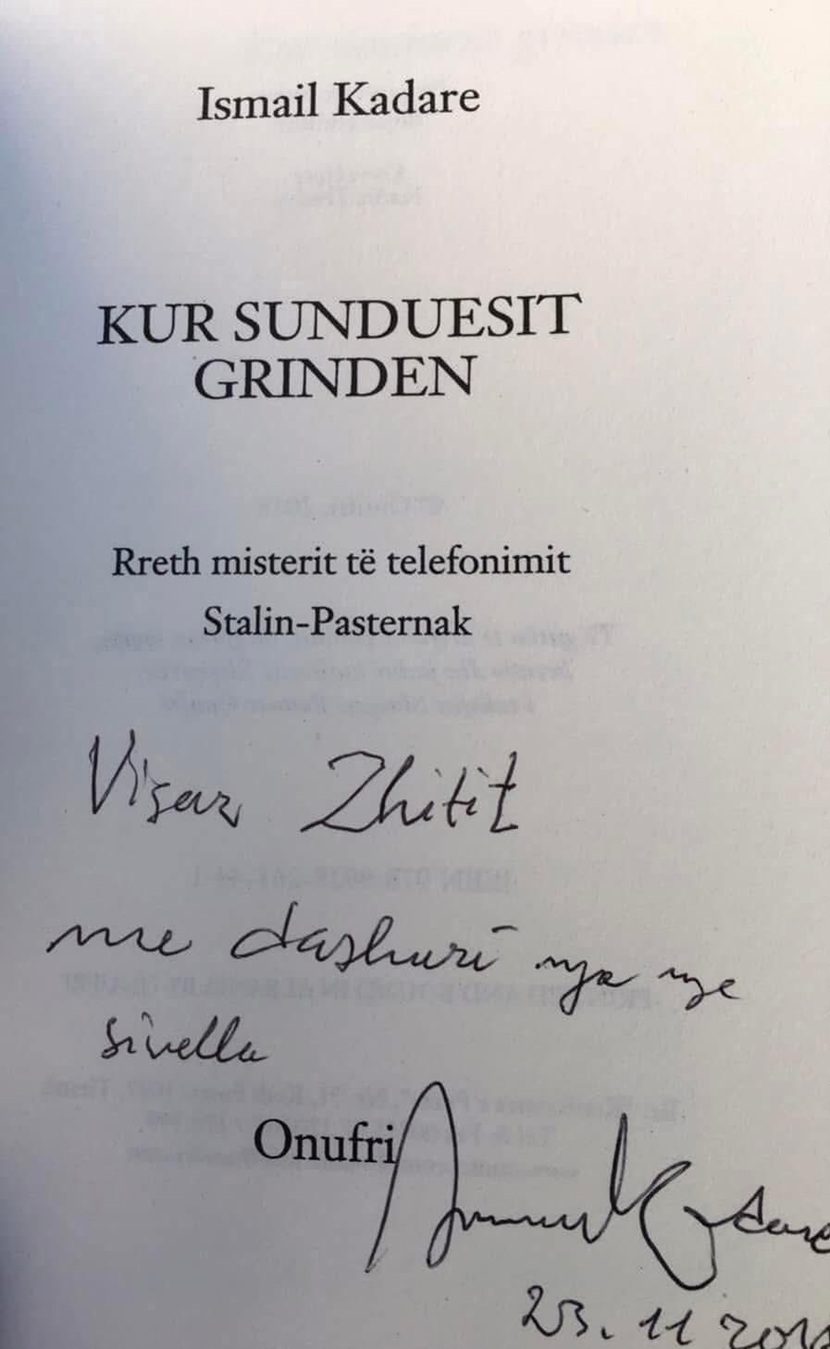 Ismail Kadare
KUR SUNDUESIT
GRINDEN
Rreth misterit të telefonimit
Stalin-Pasternak
Visar Zhitit
me dashuri nga nje
sivella
Onufri
Ismail Kadare
23. 11